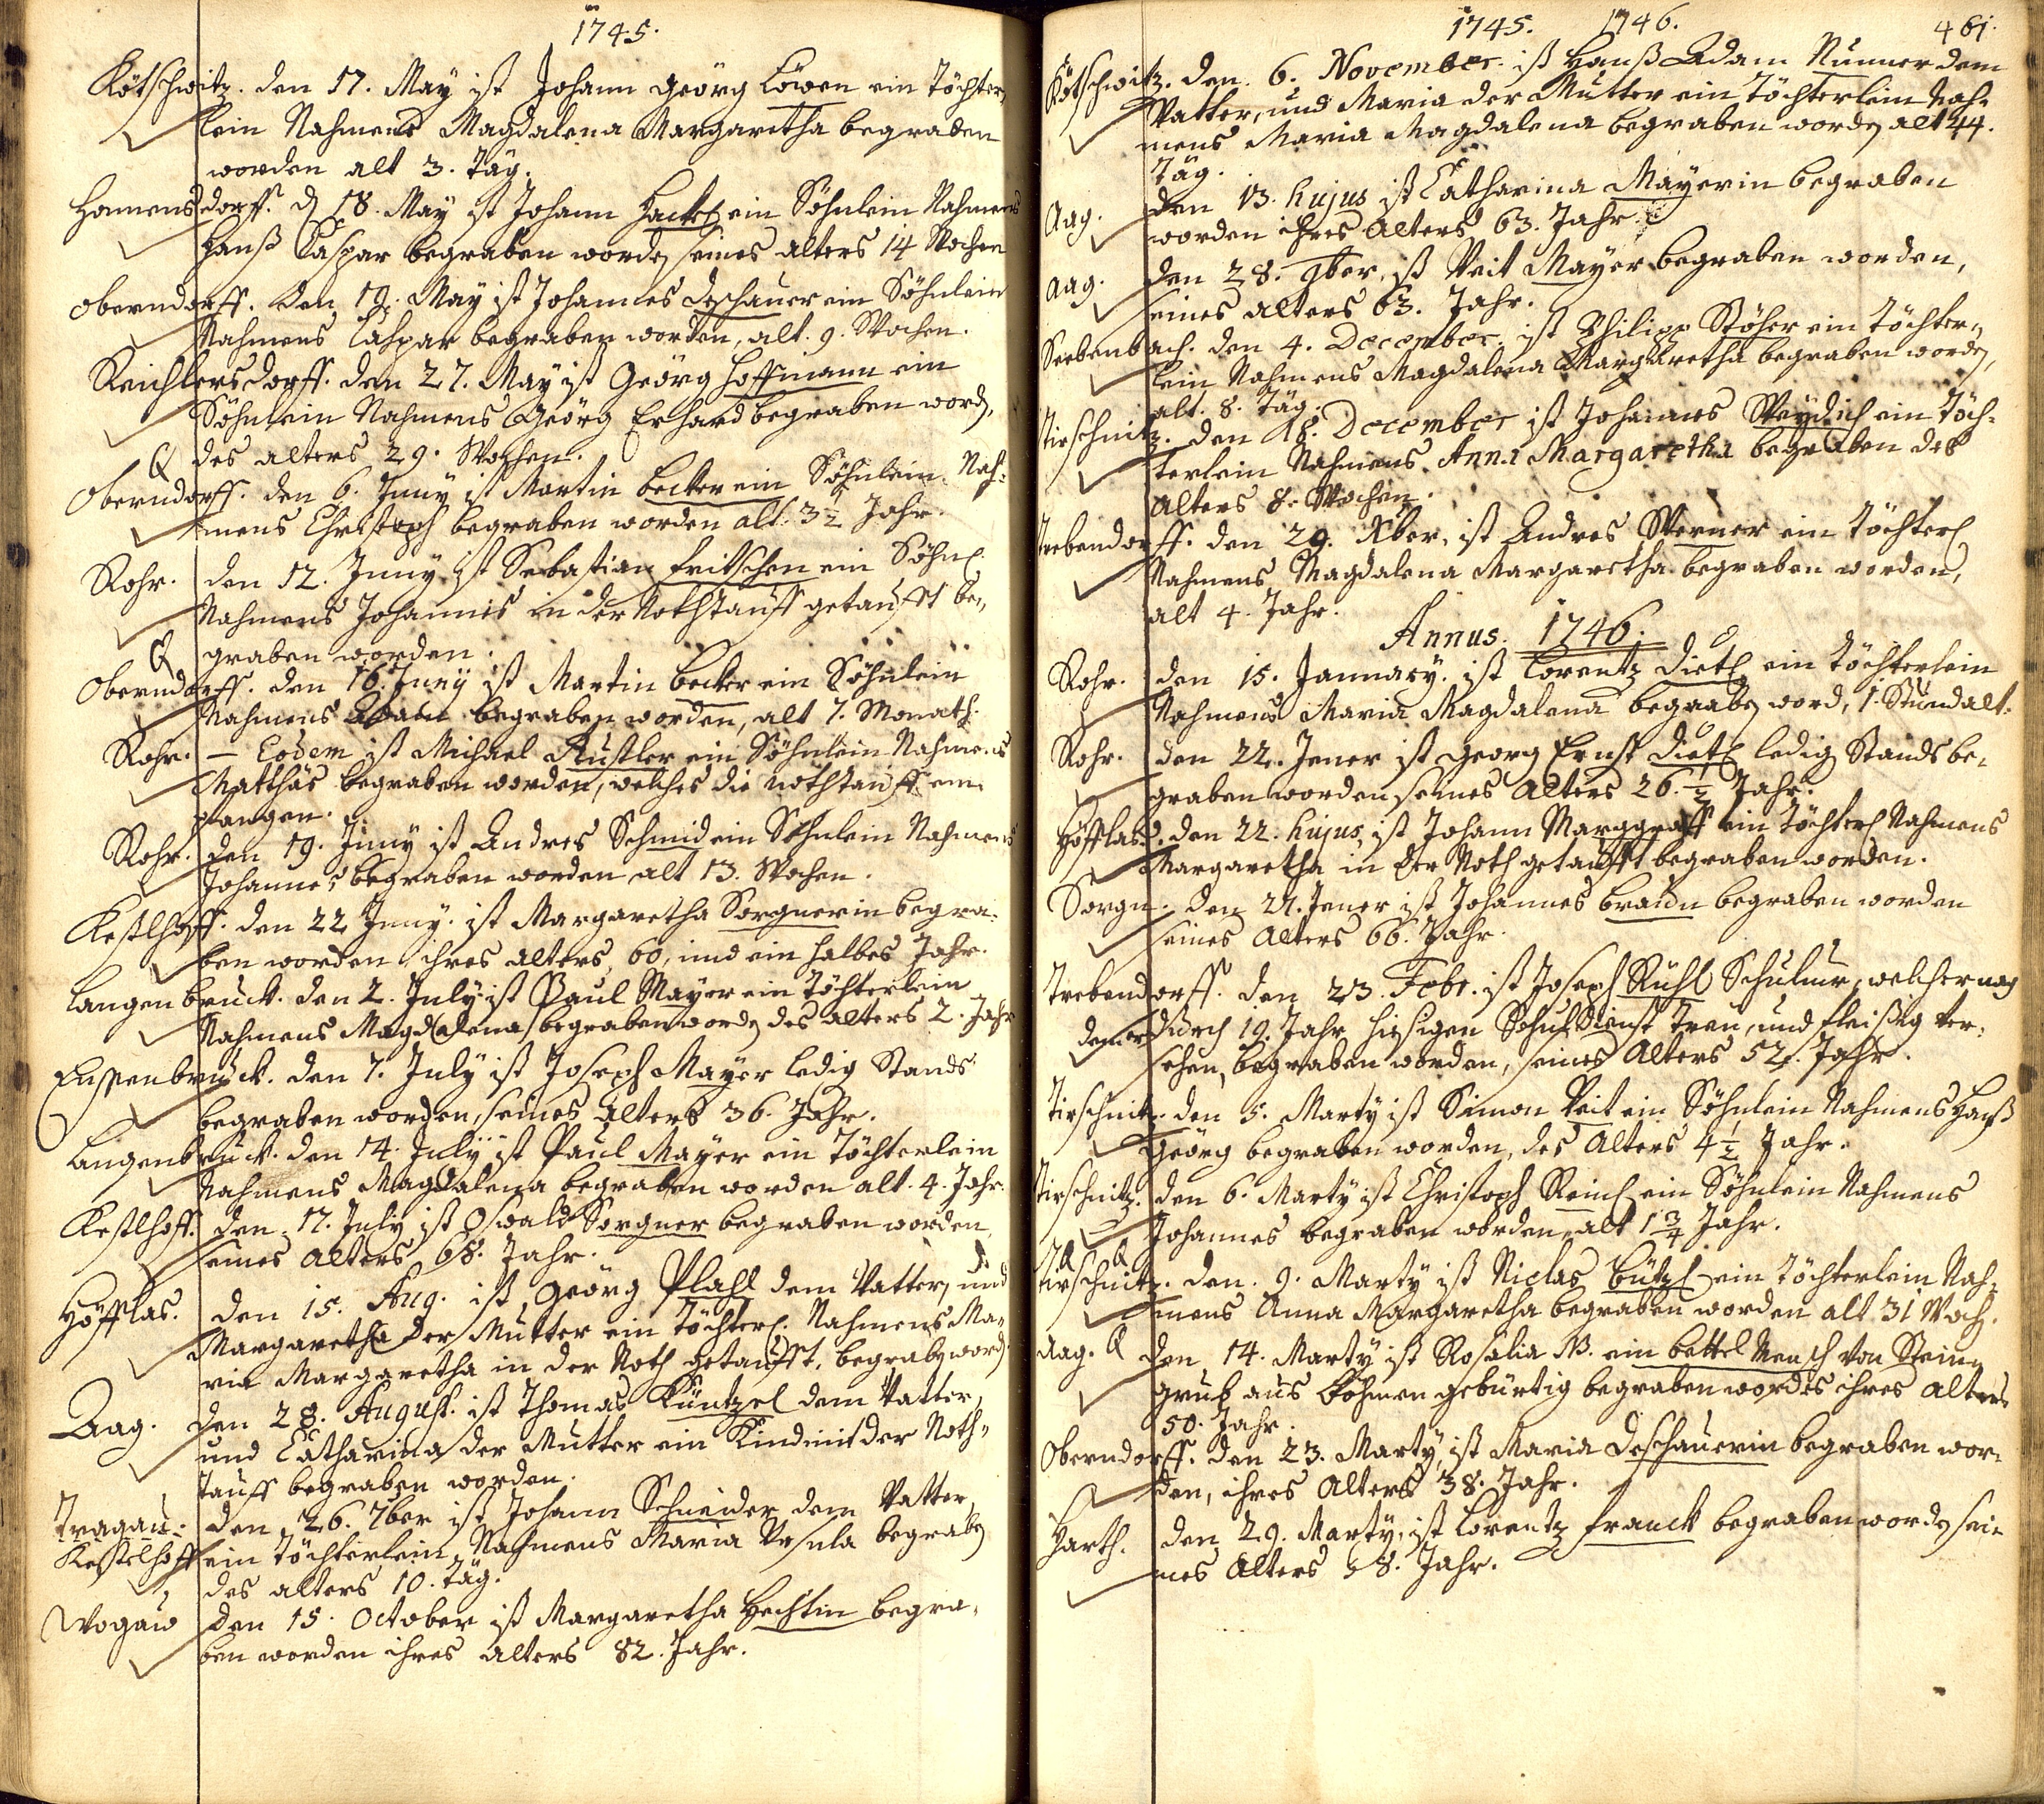 1745.
Kötschwitz. den 17. May ist Johann Georg Löwen ein Töchter-
lein Nahmens Magdalena Margaretha begraben
worden alt 3. Täg.
Honnensdorff. d 18. May ist Johann Hackel ein Söhnlein Nahmens
Hanß Caspar begraben worden seines alters 14 Wochen
Oberndorff. den 19. May ist Johannes Deschauer ein Söhnlein
Nahmens Caspar begraben worden, alt. 9. Wochen.
Reichlersdorff. den 27. May ist Georg Hoffmann ein
Söhnlein Nahmens Georg Erhard begraben word,
des alters 29. Wochen.
Oberndorff. den 6. Juny ist Martin Becker ein Söhnlein Nah-
mens Christoph begraben worden alt. 3½ Jahr.
Rohr. den 12. Juny ist Sebastian Fritschen ein Söhnl
Nahmens Johannis in der Nothtauff getaufft be-
graben worden.
Oberndorff. den 16. Juny ist Martin Becker ein Söhnlein
Nahmens Adam begraben worden, alt 7. Monath.
Rohr. – Eodem ist Michael Rustler ein Söhnlein Nahmens
Matthäs begraben worden, welches die nothtauff em-
pfangen.
Rohr. den 19. Juny ist Andres Schmid ein Söhnlein Nahmens
Johannes begraben worden alt 13. Wochen.
Kestlhoff. den 22 Juny. ist Margaretha Sorgnerin begra-
ben worden ihres alters 60, und ein halbes Jahr.
Langenbruck. den 2. July ist Paul Mayer ein Töchterlein
Nahmens Magdalena begraben worden des alters 2. Jahr
Ensenbruck. den 7. July ist Joseph Mayer ledig Stands
begraben worden, seines Alters 36. Jahr.
Langenbruck. den 14. July ist Paul Mayer ein Töchterlein
Nahmens Magdalena begraben worden alt. 4. Jahr.
Kestlhoff. den 17. July ist Oswald Sorgner begraben worden,
seines Alters 68. Jahr.
Höfflas. den 15. Aug. ist Georg Plahl dem Vatter, und
Margaretha der Mutter ein Töchterl. Nahmens Ma-
ria Margaretha in der Noth getaufft, begraben word.
Aag. den 28. August. ist Thomas Küntzel dem Vatter,
und Catharina der Mutter ein Kind mit der Noth-
tauff begraben worden.
Tragau: den 26. 7ber ist Johann Schneider dem Vatter,
Kestelhoff ein Töchterlein Nahmens Maria Ursula begraben
des alters 10. täg.
Wogau den 15. October ist Margaretha Hechtin begra-
ben worden ihres alters 82. Jahr.
1745. 1746. 461.
Kötschwitz. den 6. November ist Hanß Adam Nunner dem
Vatter, und Maria der Mutter ein Töchterlein Nah-
mens Maria Magdalena begraben worden alt 44.
Täg.
Aag. den 13. hujus ist Catharina Mayerin begraben
worden ihres Alters 63. Jahr
Aag. den 28. 9ber, ist Veit Mayer begraben worden,
seines alters 63. Jahr.
Seebenbach. den 4. December. ist Philipp Stöher ein Töchter-
lein Nahmens Magdalena Margaretha begraben worden,
alt. 8. Täg.
Tirschnitz. den 18. December ist Johannes Weydich ein Töch-
terlein Nahmens Anna Margaretha begraben des
Alters 8. Wochen.
Trebendorff. den 29. Xber, ist Andres Werner ein Töchterl
Nahmens Magdalena Margaretha begraben worden,
alt 4. Jahr.
Annus. 1746.
Rohr. den 15. January. ist Lorentz Dietl ein Töchterlein
Nahmens Maria Magdalena begraben word, 1. Stund alt.
Rohr. den 22. Jener ist Georg Ernst Dietl ledig Stands be-
graben worden seines Alters 26.½ Jahr.
Höfflas. den 22. hujus, ist Johann Marggraff ein Töchterl Nahmens
Margaretha in der Noth getaufft begraben worden.
Sorgn. den 27. Jener ist Johannes Braun begraben worden
seines Alters 66. Jahr.
Trebendorff. den 23. Febr. ist Joseph Rühl Schulmr, welcher nach
dem er durch 19. Jahr hiesigen Schuldienst Treu, und fleißig ver-
sehen, begraben worden, seines Alters 52. Jahr.
Tirschnitz. den 5. Marty ist Simon Veit ein Söhnlein Nahmens Hanß
Georg begraben worden, des Alters 4½ Jahr.
Tirschnitz. den 6. Marty ist Christoph Reinl ein Söhnlein Nahmens
Johannes begraben worden, alt 1¾ Jahr.
Tirschnitz. den. 9. Marty ist Niclas Bützl ein Töchterlein Nah-
mens Anna Margaretha begraben worden alt 31 Woch.
Aag. den 14. Marty ist Rosalia N. ein bettel Mensch von Stein-
grub aus Böhmen gebürtig begraben worden ihres Alters
50. Jahr.
Oberndorff. den 23. Marty, ist Maria Deschauerin begraben wor-
den, ihres Alters 38. Jahr.
Harth. den 29. Marty, ist Lorentz Franck begraben worden sei-
nes Alters 58. Jahr.